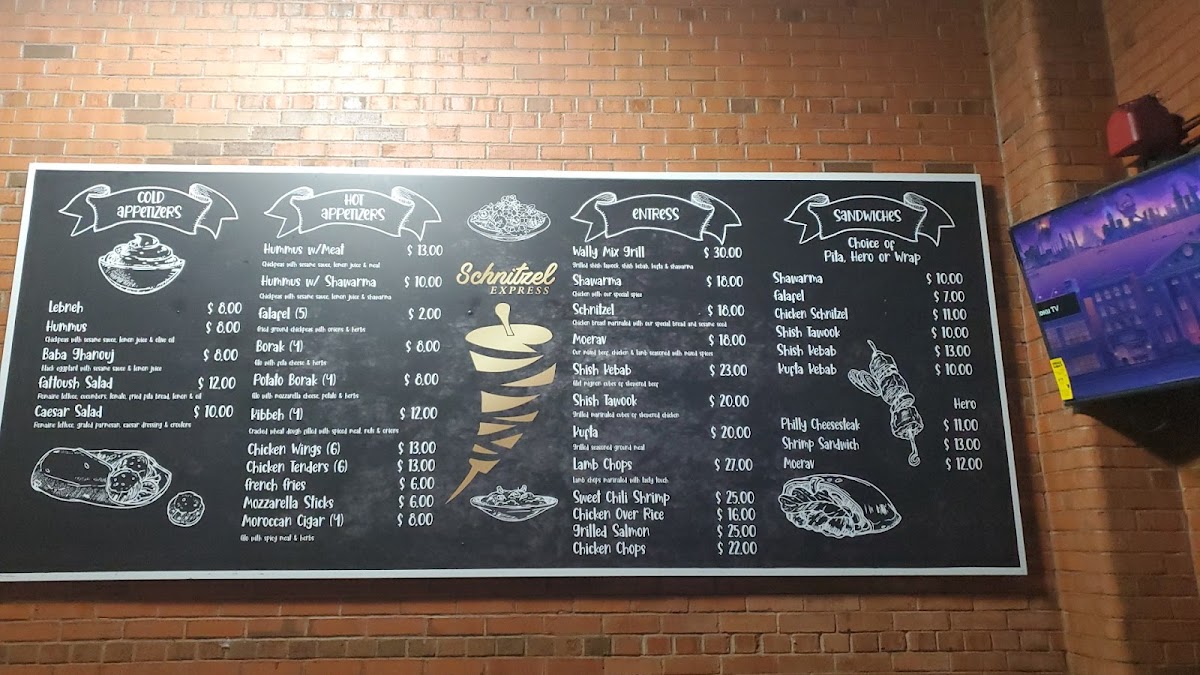 COLD
APPETIZERS
Lebneh $ 8.00
Hummus $ 8.00
Chickpeas with sesame sauce, lemon juice & olive oil
Baba Ghanouj $ 8.00
Black eggplant with sesame sauce & lemon juice
Fattoush Salad $ 12.00
Romaine lettuce, cucumbers, tomato, fried pita bread, lemon & oil
Caesar Salad $ 10.00
Romaine lettuce, grated parmesan, caesar dressing & croutons
HOT
APPETIZERS
Hummus w/Meat $ 13.00
Chickpeas with sesame sauce, lemon juice & meat
Hummus w/ Shawarma $ 10.00
Chickpeas with sesame sauce, lemon juice & shawarma
Falafel (5) $ 2.00
Fried ground chickpeas with onions & herbs
Borak (4) $ 8.00
filo with feta cheese & herbs
Potato Borak (4) $ 8.00
filo with mozzarella cheese, potato & herbs
Kibbeh (4) $ 12.00
Cracked wheat dough filled with spiced meat, nuts & onions
Chicken Wings (6) $ 13.00
Chicken Tenders (6) $ 13.00
French Fries $ 6.00
Mozzarella Sticks $ 6.00
Moroccan Cigar (4) $ 8.00
filo with spicy meat & herbs
Schnitzel
EXPRESS
ENTRESS
Wally Mix Grill $ 30.00
Grilled shish tawook, shish kebab, kufta & shawarma
Shawarma $ 18.00
Chicken with our special spice
Schnitzel $ 18.00
Chicken breast marinated with our special bread and sesame seed
Moerav $ 18.00
Our mixed beef, chicken & lamb seasoned with mixed spices
Shish Kebab $ 23.00
filet mignon cubes of skewered beef
Shish Tawook $ 20.00
Grilled marinated cubes of skewered chicken
Kufta $ 20.00
Grilled seasoned ground meat
Lamb Chops $ 27.00
Lamb chops marinated with tasty touch
Sweet Chili Shrimp $ 25.00
Chicken Over Rice $ 16.00
Grilled Salmon $ 25.00
Chicken Chops $ 22.00
SANDWICHES
Choice of
Pita, Hero or Wrap
Shawarma $ 10.00
Falafel $ 7.00
Chicken Schnitzel $ 11.00
Shish Tawook $ 10.00
Shish Kebab $ 13.00
Kufta Kebab $ 10.00
Hero
Philly Cheesesteak $ 11.00
Shrimp Sandwich $ 13.00
Moerav $ 12.00
TV